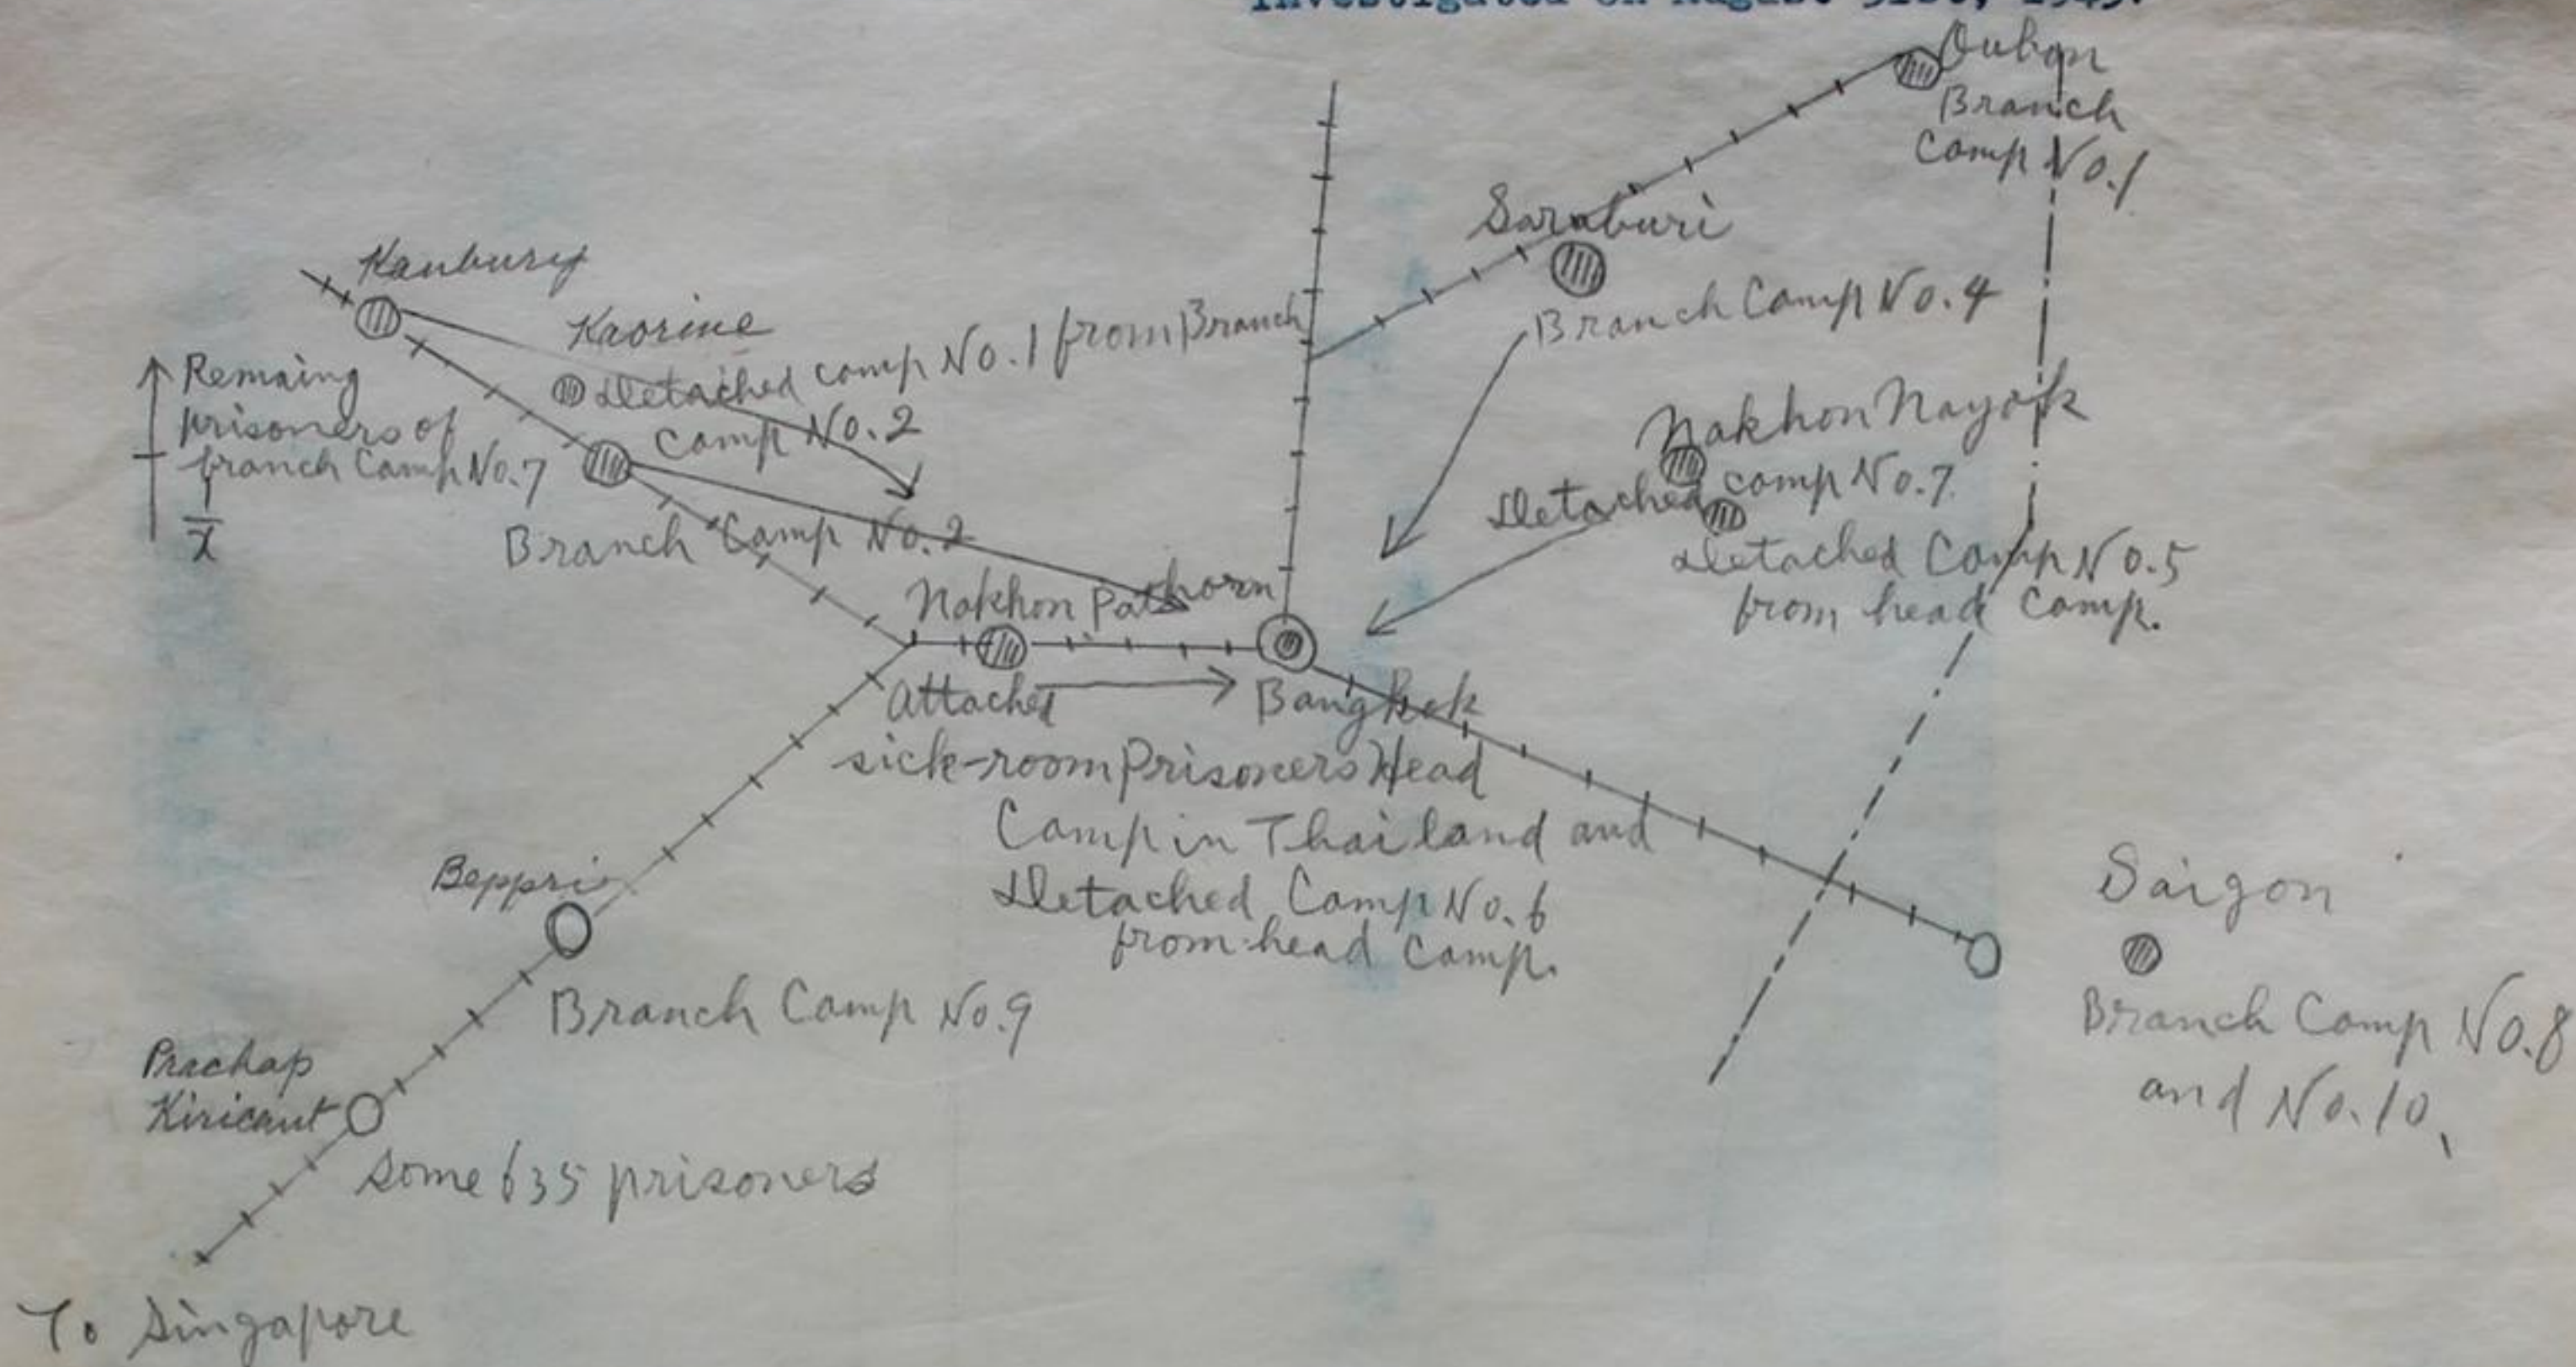 Investigated on August 31st, 1945.
Oubon
Branch
Camp No.1
Saraburi
Branch Camp No.4
Kanbury
Kaorine
Detached camp No.1 from Branch
Camp No.2
Remaing
prisoners of
branch Camp No.7
Branch Camp No.2
Nakhon Nayok
Detached camp No.7
Detached Camp No.5
from head Camp.
Nakhon Pathorn
Attached
sick-room
Bangkok
Prisoners Head
Camp in Thailand and
Detached Camp No.6
from head Camp.
Beppri
Branch Camp No.9
Prachap
Kiricaut
Some 635 prisoners
To Singapore
Saigon
Branch Camp No.8
and No.10,